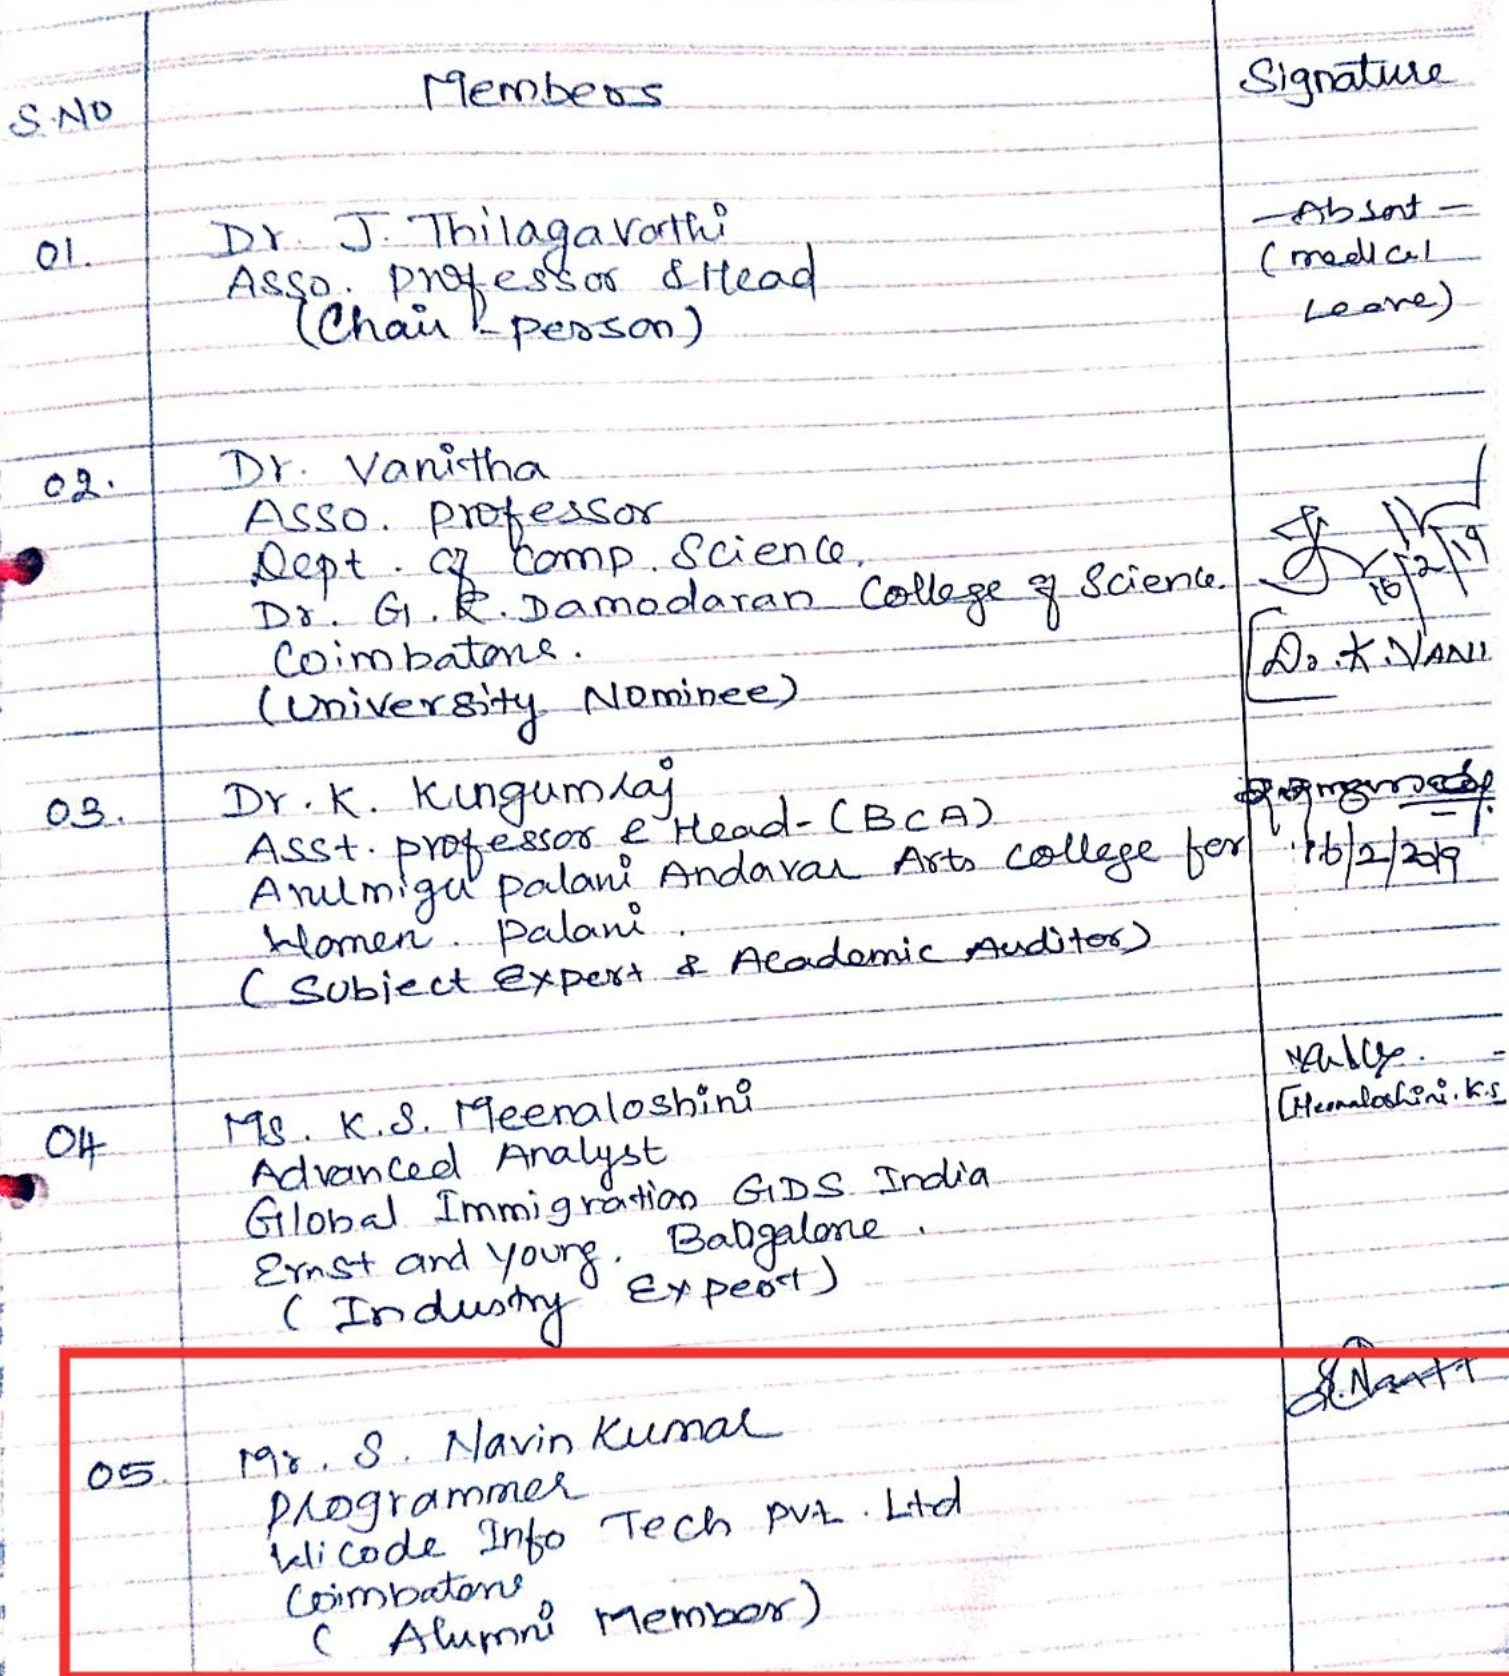 S.NO Members Signature
01. Dr. J. Thilagavathi -Absent-
Asso. professor & Head (medical
(Chair - person) Leave)
02. Dr. Vanitha
Asso. professor
Dept. of Comp. Science.
Dr. G.R. Damodaran College of Science. 16/2/19
Coimbatore. Dr. K. VANI
(University Nominee)
03. Dr. K. Kungumraj
Asst. professor & Head - (BCA)
Arulmigu Palani Andavar Arts College for 16/2/2019
Women. Palani.
(Subject Expert & Academic Auditor)
04 Ms. K.S. Meenaloshini [Meenaloshini. K.S
Advanced Analyst
Global Immigration GDS India
Ernst and Young. Bangalore.
(Industry Expert)
05. Mr. S. Navin Kumar
Programmer
Wicode Info Tech Pvt. Ltd
Coimbatore
(Alumni Member)